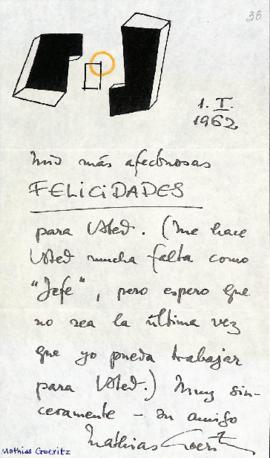 38
1. I.
1962
mis más afectuosas
FELICIDADES
para Usted. (Me hace
Usted mucha falta como
"Jefe", pero espero que
no sea la última vez
que yo pueda trabajar
para Usted.) Muy sin-
ceramente – su amigo
Mathias Goeritz
Mathias Goeritz